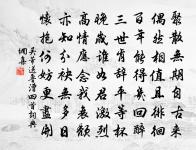 聚散無期自古來
偶然相值且徘徊
百年能得幾回醉
三世肯辭平等杯
晚歲誰如君激烈
高情應念我衰頹
亦知分袂無多日
懷抱何妨更盡開
吳芾送李 四首詞典
網集